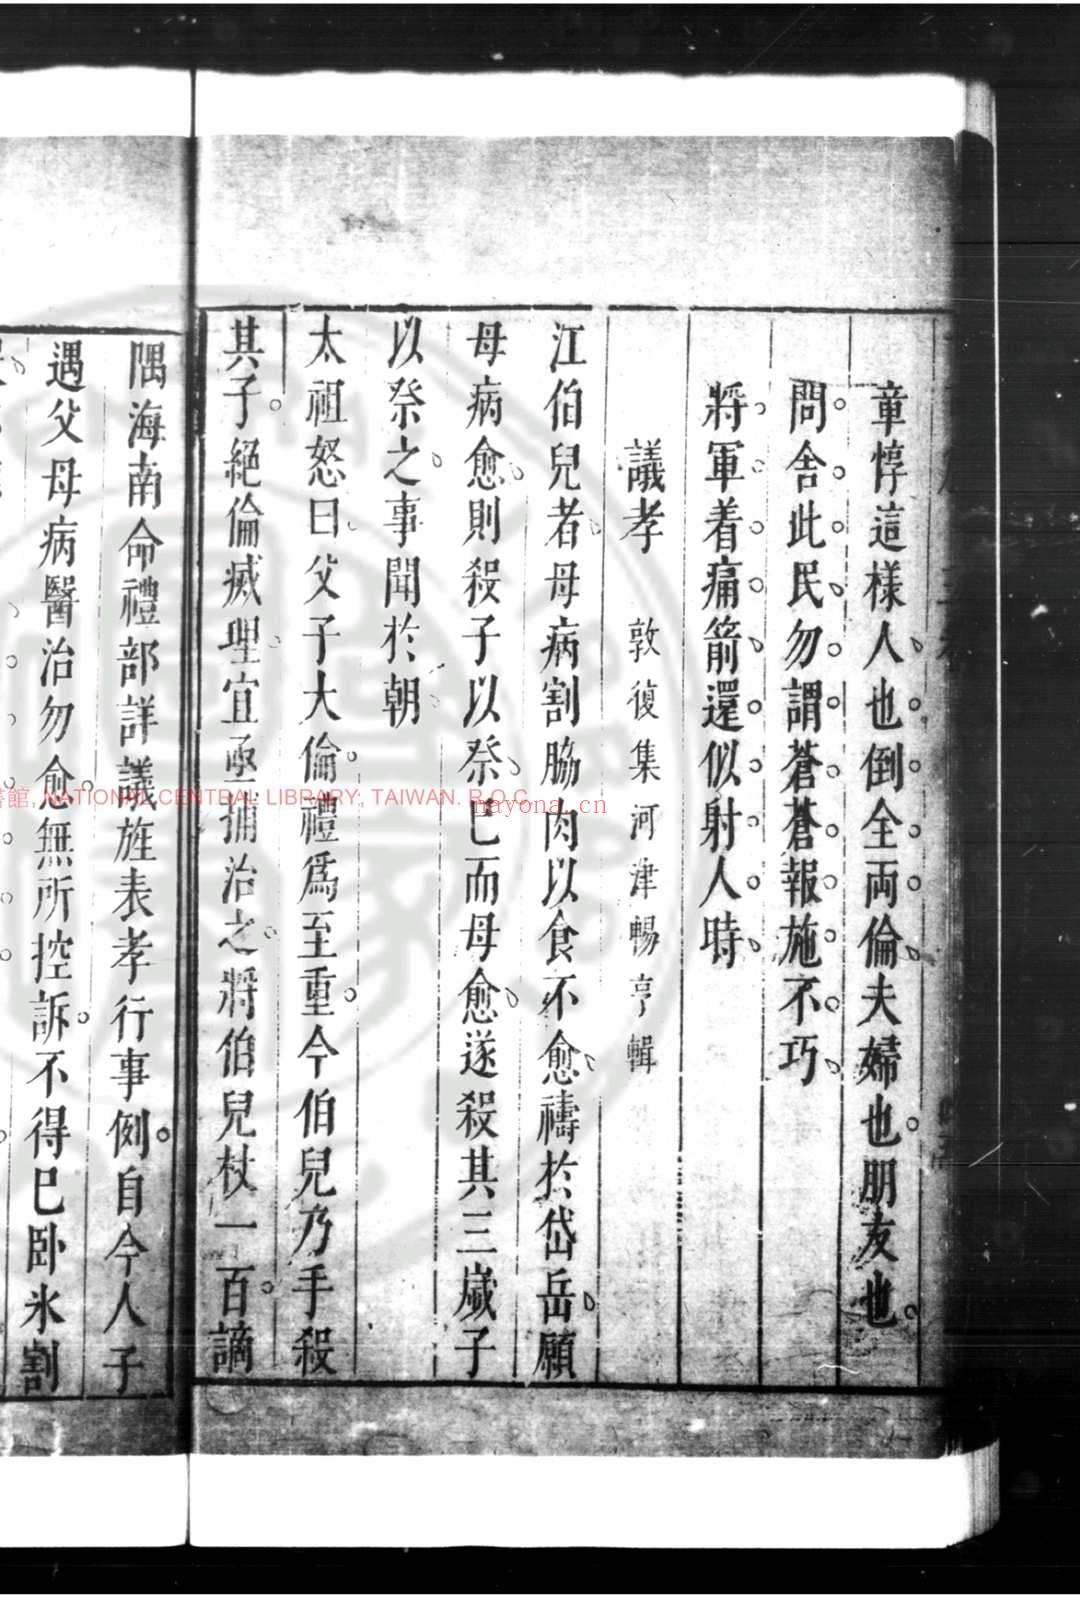 章惇這樣人也倒全両倫夫婦也朋友也
問舎此民勿謂蒼蒼報施不巧
將軍着痛箭還似射人時
議孝 敦復集河津暢亨輯
江伯兒者母病割脇肉以食不愈禱於岱岳願
母病愈則殺子以祭已而母愈遂殺其三歲子
以祭之事聞於朝
太祖怒曰父子大倫禮爲至重今伯兒乃手殺
其子絕倫滅理宜亟捕治之將伯兒杖一百謫
隅海南命禮部詳議旌表孝行事例自今人子
遇父母病醫治勿愈無所控訴不得已卧氷割
書館, NATIONAL CENTRAL LIBRARY, TAIWAN. R.O.C
nayona.cn